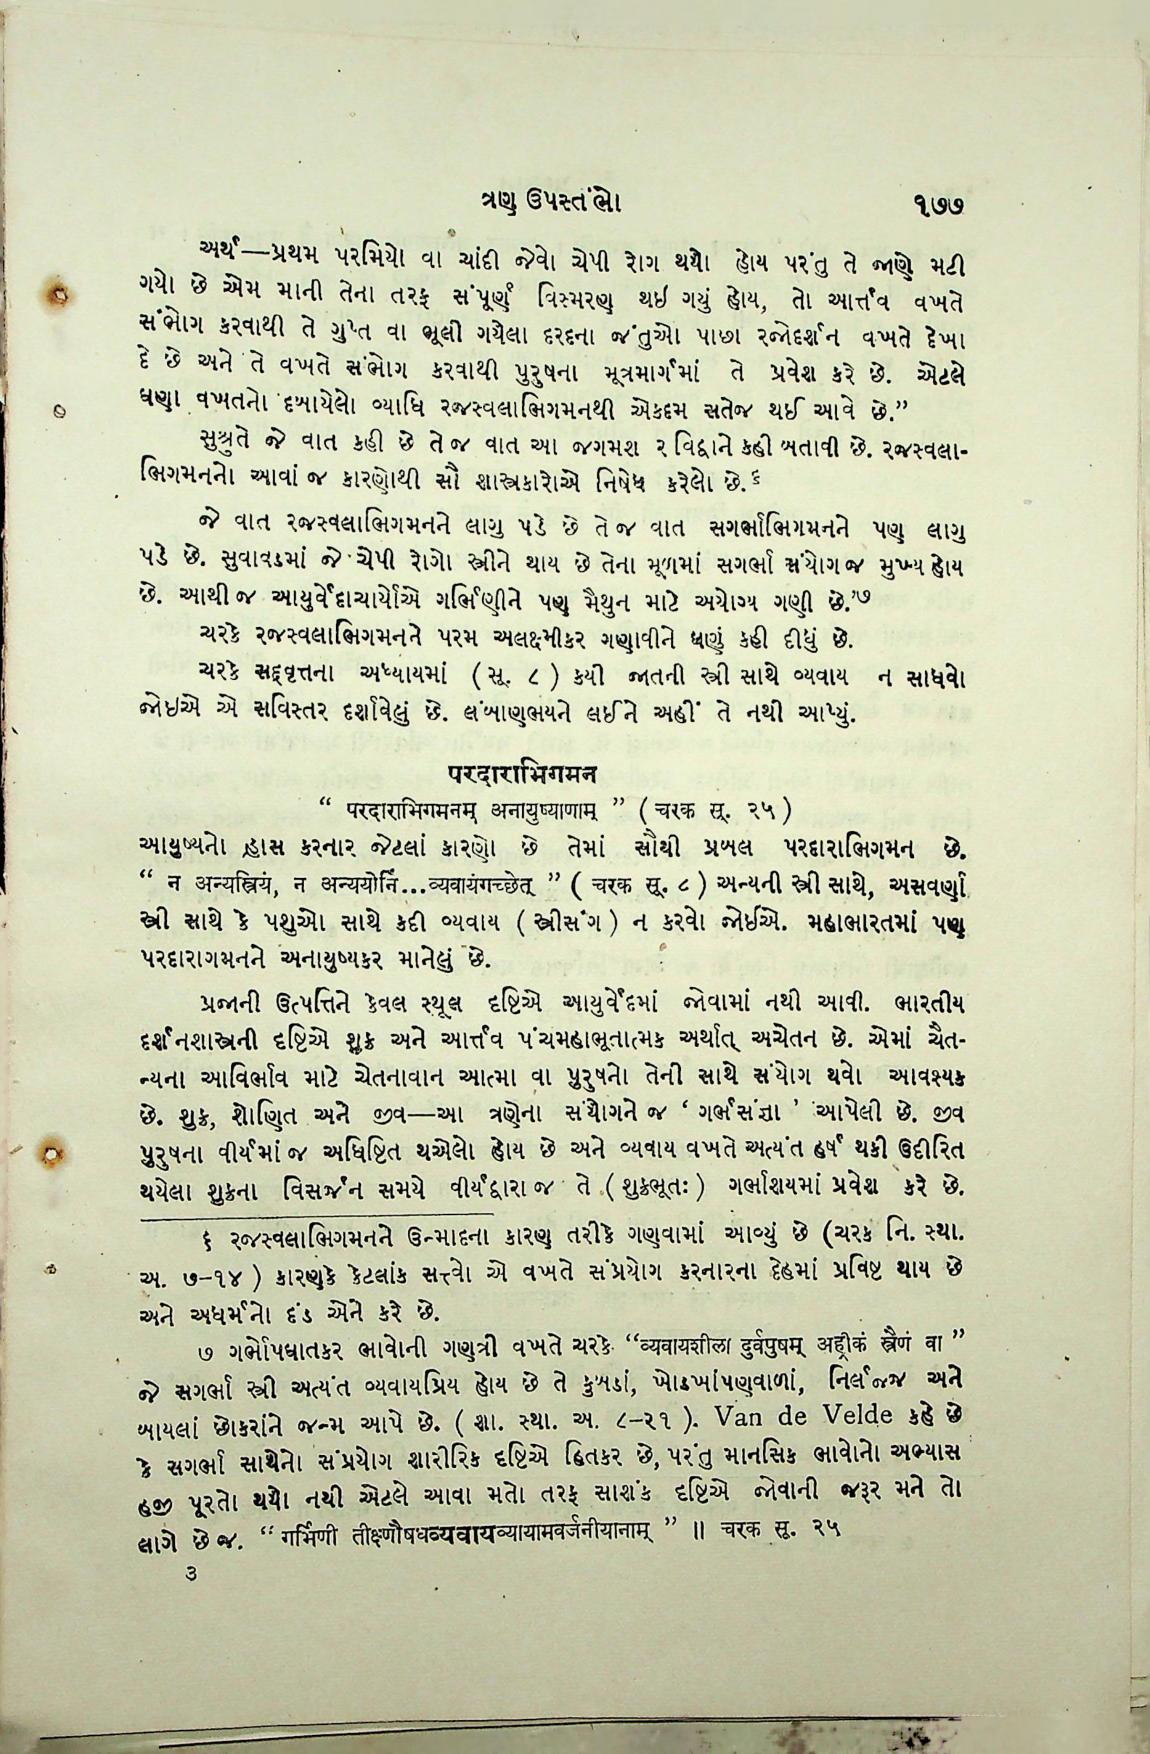 ત્રણ ઉપસ્તંભો
૧૭૭
અર્થ—પ્રથમ પરમિયો વા ચાંદી જેવો ચેપી રોગ થયો હોય પરંતુ તે જાણે મટી
ગયો છે એમ માની તેના તરફ સંપૂર્ણ વિસ્મરણ થઇ ગયું હોય, તો આર્ત્તવ વખતે
સંભોગ કરવાથી તે ગુપ્ત વા ભૂલી ગયેલા દરદના જંતુઓ પાછા રજોદર્શન વખતે દેખા
દે છે અને તે વખતે સંભોગ કરવાથી પુરુષના મૂત્રમાર્ગમાં તે પ્રવેશ કરે છે. એટલે
ઘણા વખતનો દબાયેલો વ્યાધિ રજસ્વલાભિગમનથી એકદમ સતેજ થઈ આવે છે.”
સુશ્રુતે જે વાત કહી છે તેજ વાત આ જગમશહૂર વિદ્વાને કહી બતાવી છે. રજસ્વલા-
ભિગમનનો આવાં જ કારણોથી સૌ શાસ્ત્રકારોએ નિષેધ કરેલો છે.૬
જે વાત રજસ્વલાભિગમનને લાગુ પડે છે તેજ વાત સગર્ભાભિગમનને પણ લાગુ
પડે છે. સુવાવડમાં જે ચેપી રોગો સ્ત્રીને થાય છે તેના મૂળમાં સગર્ભા સંયોગજ મુખ્ય હોય
છે. આથીજ આયુર્વેદાચાર્યોએ ગર્ભિણીને પણ મૈથુન માટે અયોગ્ય ગણી છે.’૭
ચરકે રજસ્વલાભિગમનને પરમ અલક્ષ્મીકર ગણાવીને ઘણું કહી દીધું છે.
ચરકે સદ્દવૃત્તના અધ્યાયમાં ( સૂ. ૮ ) કયી જાતની સ્ત્રી સાથે વ્યવાય ન સાધવો
જોઇએ એ સવિસ્તર દર્શાવેલું છે. લંબાણભયને લઈને અહીં તે નથી આપ્યું.
પરદારાભિગમન
“ परदाराभिगमनम् अनायुष्याणाम् ” ( ચરક સૂ. ૨૫ )
આયુષ્યનો હ્રાસ કરનાર જેટલાં કારણો છે તેમાં સૌથી પ્રબલ પરદારાભિગમન છે.
“ न अन्यस्त्रियं, न अन्ययोनिं...व्यवायंगच्छेत् ” ( ચરક સૂ. ૮ ) અન્યની સ્ત્રી સાથે, અસવર્ણા
સ્ત્રી સાથે કે પશુઓ સાથે કદી વ્યવાય ( સ્ત્રીસંગ ) ન કરવો જોઈએ. મહાભારતમાં પણ
પરદારાગમનને અનાયુષ્યકર માનેલું છે.
પ્રજાની ઉત્પત્તિને કેવલ સ્થૂલ દૃષ્ટિએ આયુર્વેદમાં જોવામાં નથી આવી. ભારતીય
દર્શનશાસ્ત્રની દૃષ્ટિએ શુક્ર અને આર્ત્તવ પંચમહાભૂતાત્મક અર્થાત્ અચેતન છે. એમાં ચૈત-
ન્યના આવિર્ભાવ માટે ચેતનાવાન આત્મા વા પુરુષનો તેની સાથે સંયોગ થવો આવશ્યક
છે. શુક્ર, શોણિત અને જીવ—આ ત્રણેના સંયોગને જ ‘ ગર્ભસંજ્ઞા ’ આપેલી છે. જીવ
પુરુષના વીર્યમાંજ અધિષ્ટિત થએલો હોય છે અને વ્યવાય વખતે અત્યંત હર્ષ થકી ઉદીરિત
થયેલા શુક્રના વિસર્જન સમયે વીર્યદ્વારાજ તે ( શુક્રભૂતઃ ) ગર્ભાશયમાં પ્રવેશ કરે છે.
૬ રજસ્વલાભિગમનને ઉન્માદના કારણ તરીકે ગણવામાં આવ્યું છે (ચરક નિ. સ્થા.
અ. ૭-૧૪ ) કારણકે કેટલાંક સત્ત્વો એ વખતે સંપ્રયોગ કરનારના દેહમાં પ્રવિષ્ટ થાય છે
અને અધર્મનો દંડ એને કરે છે.
૭ ગર્ભોપઘાતકર ભાવોની ગણત્રી વખતે ચરકે “व्यवायशीला दुर्वपुषम् अह्रीकं स्त्रैणं वा ”
જે સગર્ભા સ્ત્રી અત્યંત વ્યવાયપ્રિય હોય છે તે કુબડાં, ખોડખાંપણવાળાં, નિર્લજ્જ અને
બાયલાં છોકરાંને જન્મ આપે છે. ( શા. સ્થા. અ. ૮-૨૧ ). Van de Velde કહે છે
કે સગર્ભા સાથેનો સંપ્રયોગ શારીરિક દૃષ્ટિએ હિતકર છે, પરંતુ માનસિક ભાવોનો અભ્યાસ
હજી પૂરતો થયો નથી એટલે આવા મતો તરફ સાશંક દૃષ્ટિએ જોવાની જરૂર મને તો
લાગે છેજ. “ गर्भिणी तीक्ष्णौषधव्यवायव्यायामवर्जनीयानाम् ” ॥ ચરક સૂ. ૨૫
૩